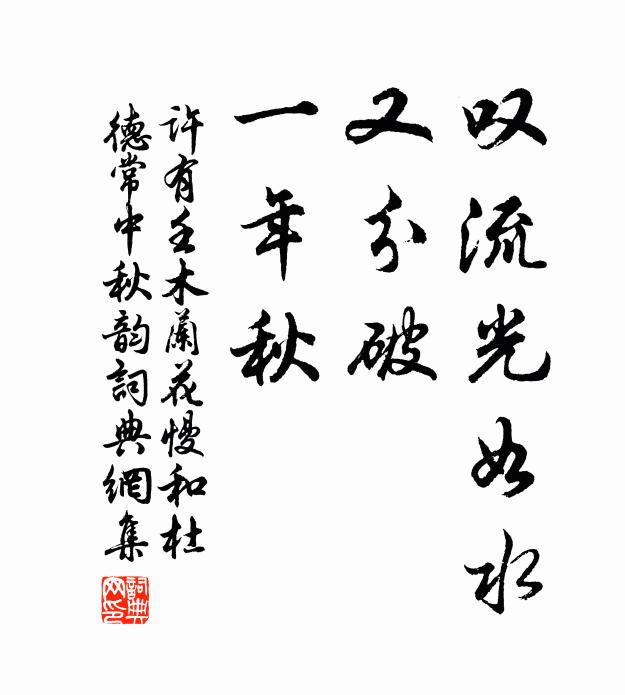 叹流光如水
又分破
一年秋
許有壬木蘭花慢和杜
德常中秋韵詞典網集
詞典
网印